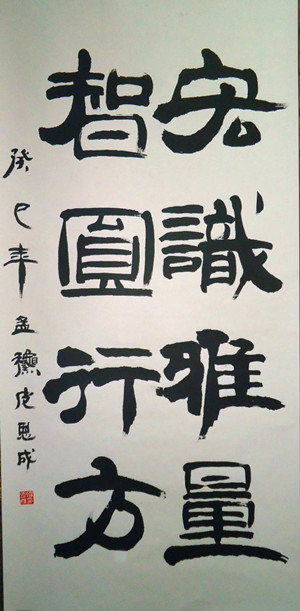 宏識雅量
智圓行方
癸巳年孟龝成